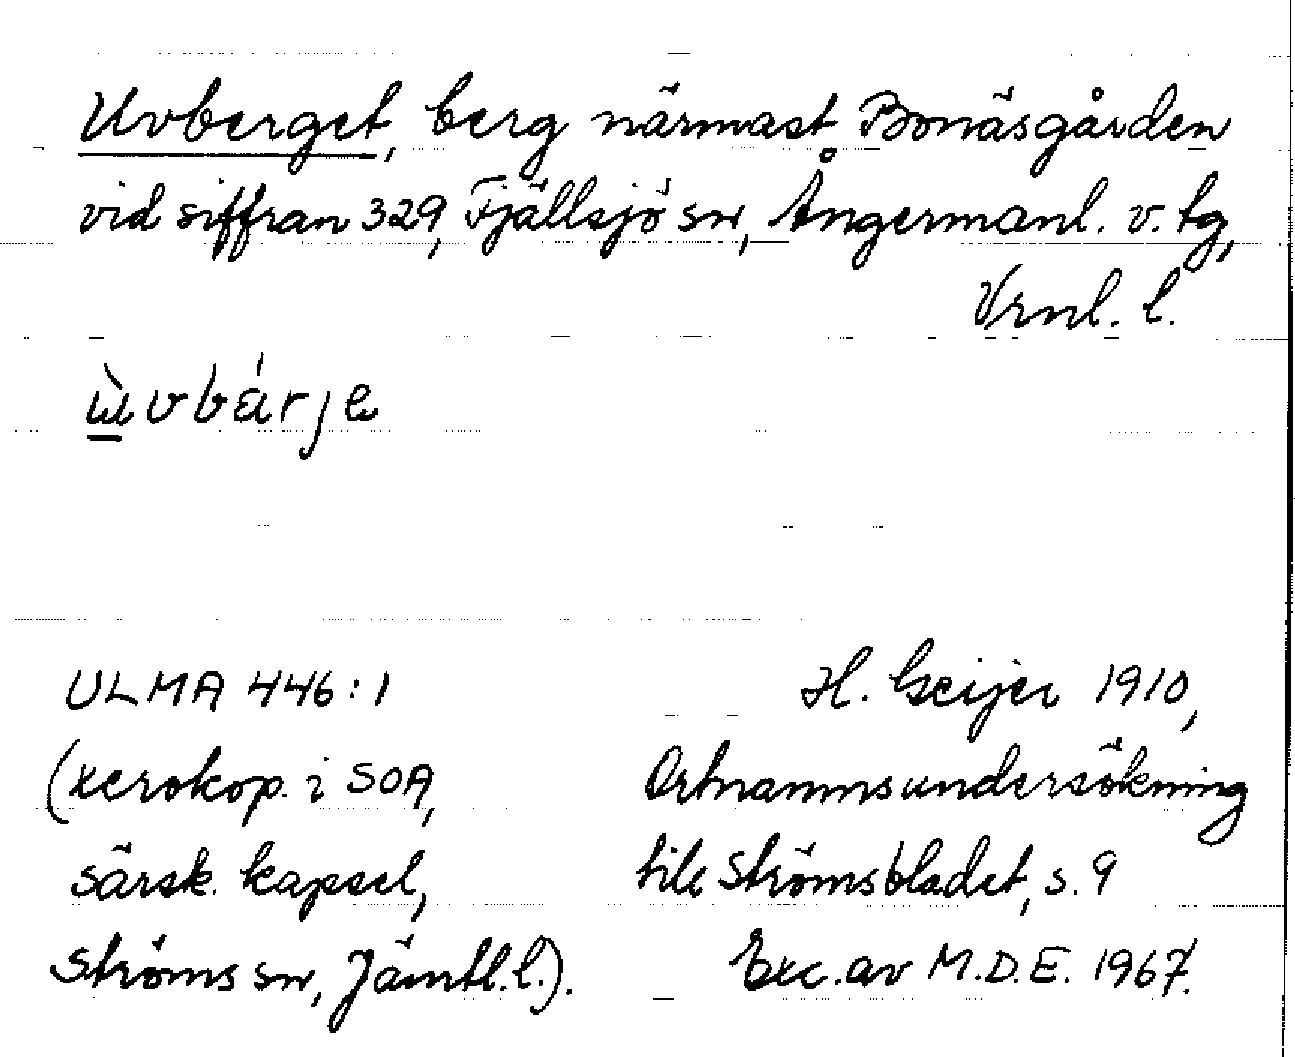 Uvberget, berg närmast Bonäsgården
vid siffran 329, Fjällsjö sn, Ångermanl. v. tg,
Vrnl. l.
ùvbárje
ULMA 446:1
(xerokop. i SOA,
särsk. kapsel,
Ströms sn, Jämtl. l.).
H. Geijer 1910,
Ortnamnsundersökning
till Strömsbladet, s. 9
Exc. av M.D.E. 1967.